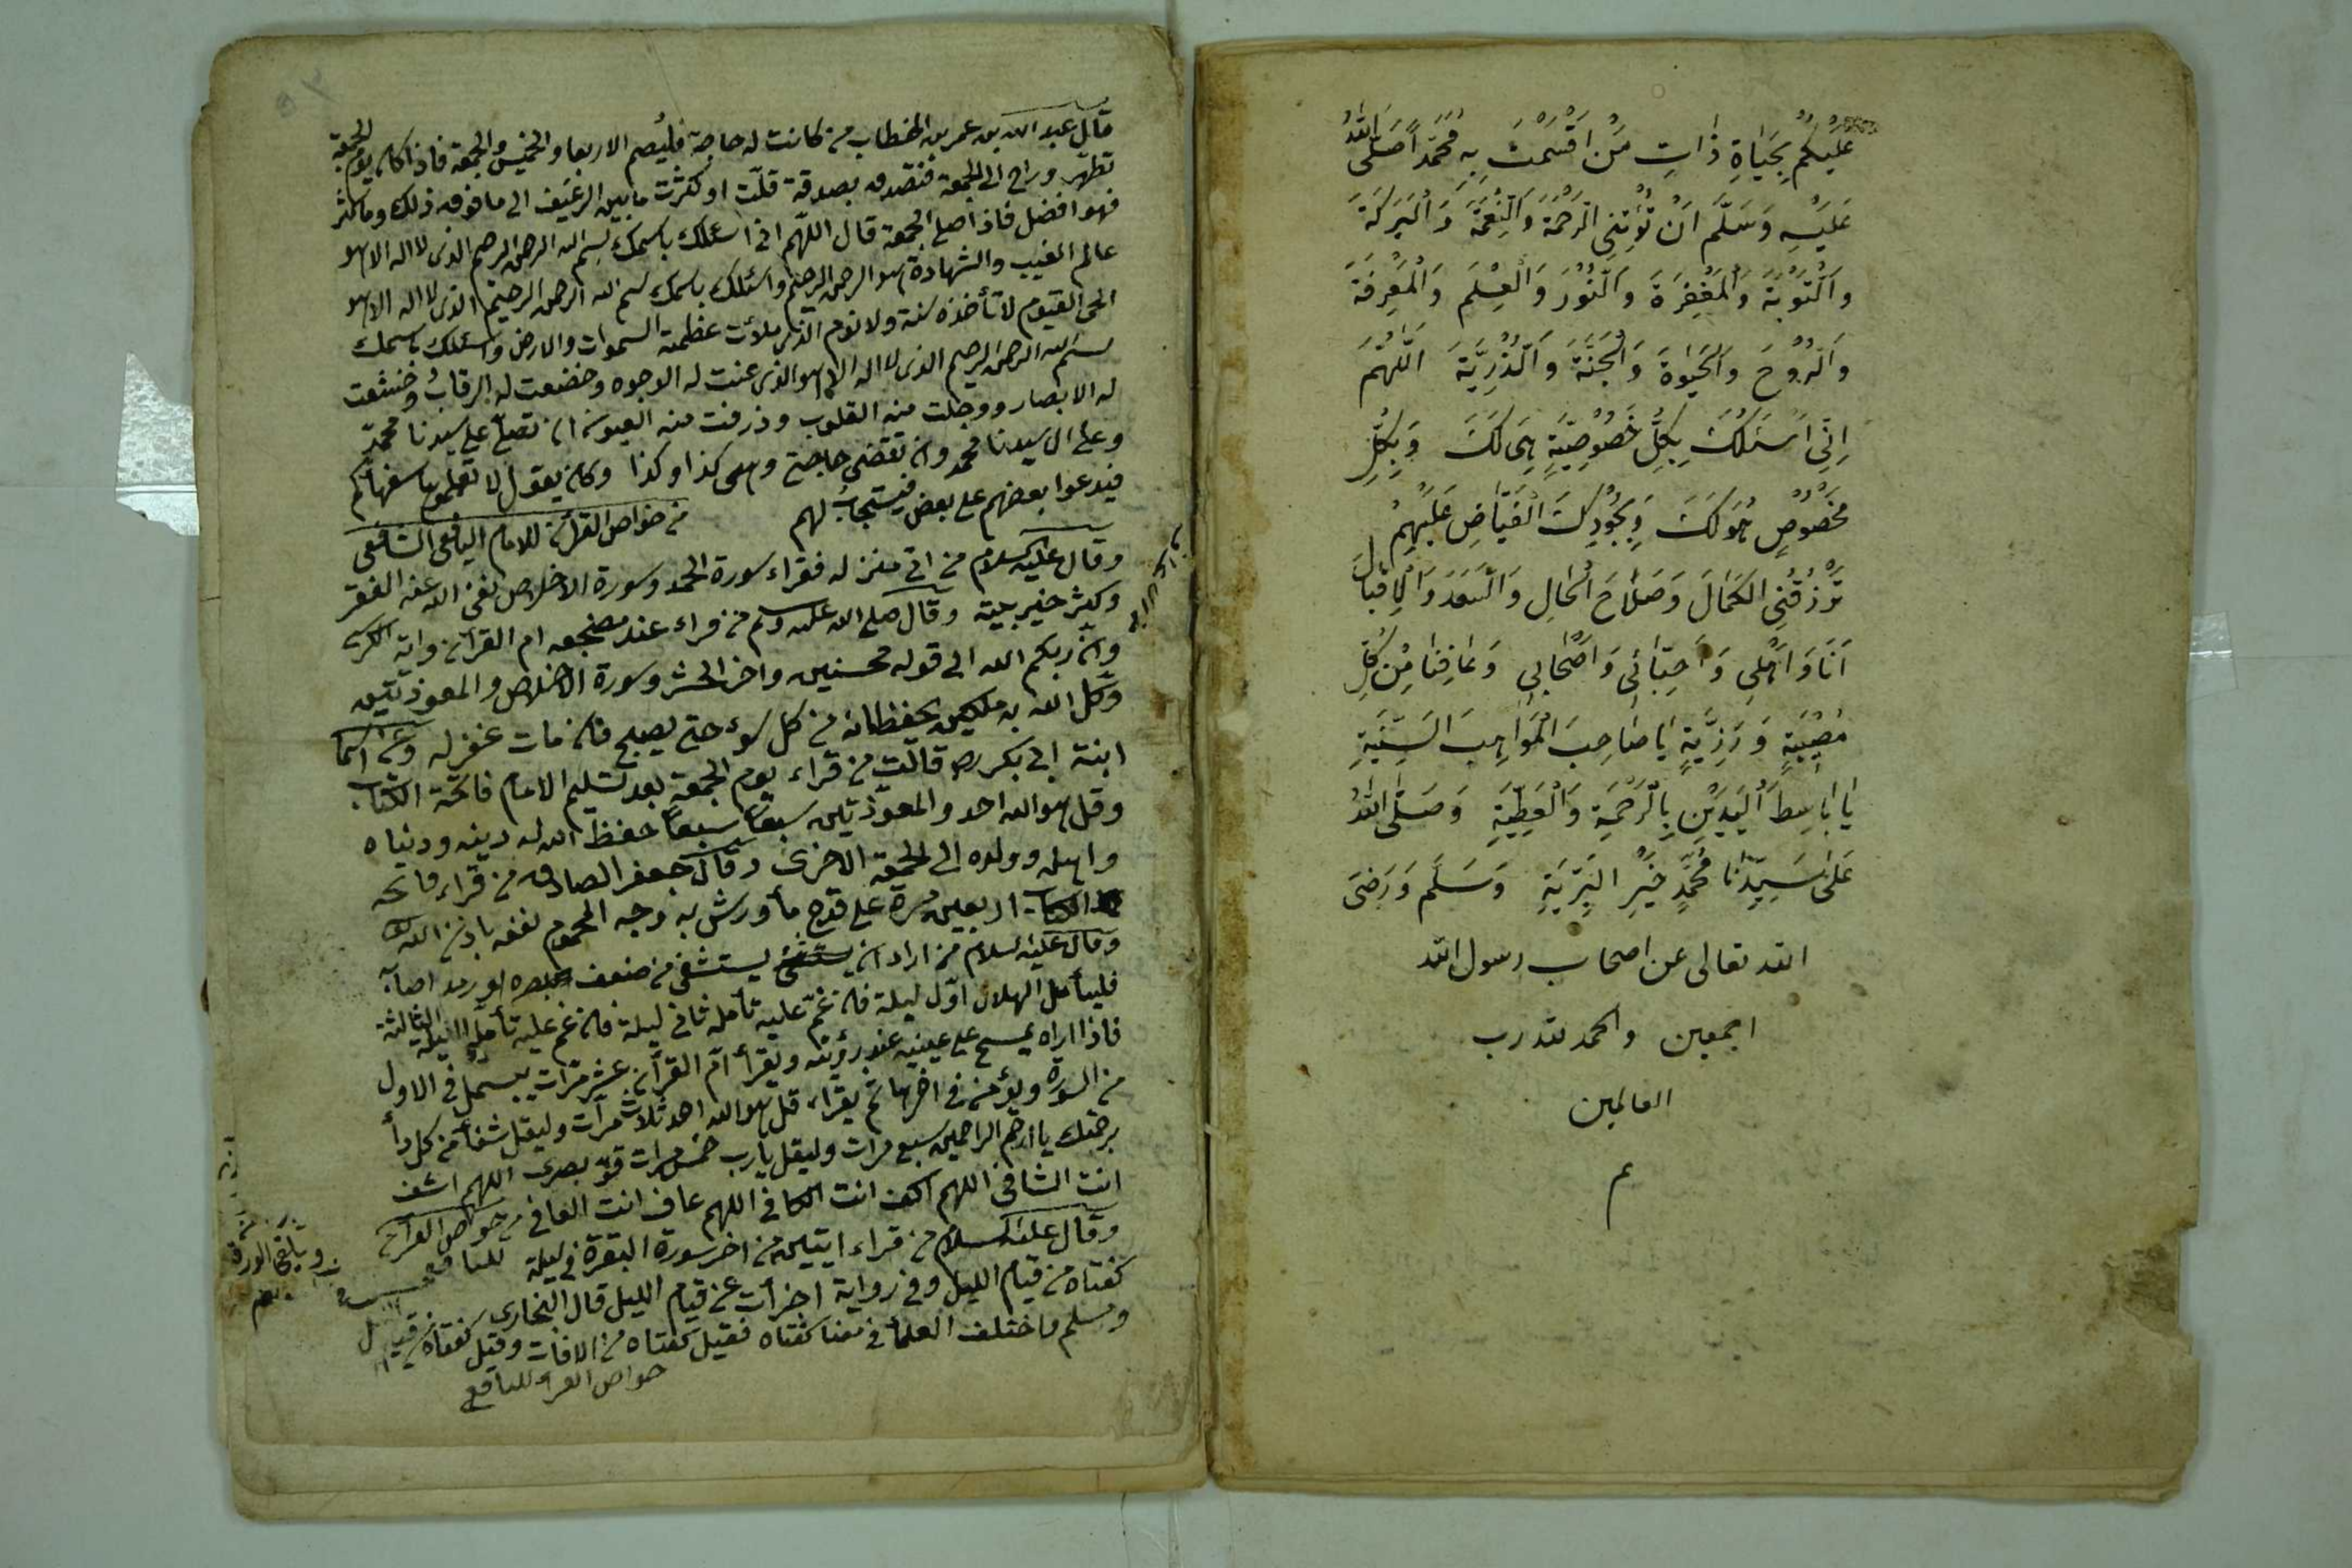 عَلَيْكُمْ بِحَيَاةِ ذَاتِ مَنْ اَقْسَمْتَ بِهِ مُحَمَّدًا صَلَّى اللهُ
عَلَيْهِ وَسَلَّمَ اَنْ تُؤْتِنِي الرَّحْمَةَ وَالنِّعْمَةَ وَالْبَرَكَةَ
وَالتَّوْبَةَ وَالْمَغْفِرَةَ وَالنُّوْرَ وَالْعِلْمَ وَالْمَعْرِفَةَ
وَالرُّوْحَ وَالْحَيٰوةَ وَالْجَنَّةَ وَالذُّرِّيَّةَ اَللّٰهُمَّ
اِنِّي اَسْئَلُكَ بِكُلِّ خُصُوْصِيَّةٍ هِيَ لَكَ وَبِكُلِّ
مَخْصُوْصٍ هُوَ لَكَ وَبِجُوْدِكَ الْفَيَّاضِ عَلَيْهِمْ
تَرْزُقُنِي الْكَمَالَ وَصَلَاحَ الْحَالِ وَالسَّعَدَ وَالْاِقْبَالَ
اَنَا وَاَهْلِي وَاَحِبَّائِي وَاَصْحَابِي وَعَافِنَا مِنْ كُلِّ
مُصِيْبَةٍ وَرَزِيَّةٍ يَا صَاحِبَ الْمَوَاهِبِ السَّنِيَّةِ
يَا بَاسِطَ الْيَدَيْنِ بِالرَّحْمَةِ وَالْعَطِيَّةِ وَصَلَّى اللهُ
عَلٰى سَيِّدِنَا مُحَمَّدٍ خَيْرِ الْبَرِيَّةِ وَسَلَّمَ وَرَضِيَ
الله تعالى عن اصحاب رسول الله
اجمعين والحمد لله رب
العالمين
م
قال عبد الله بن عمر بن الخطاب من كانت له حاجة فليُصم الاربعا والخميس والجمعة فاذا كان يوم الجمعة
تطهّر وراح الى الجمعة فتصدق بصدقة قلّت او كثرت ما بين الرغيف الى ما فوق ذلك وما كثر
فهو افضل فاذا صلى الجمعة قال اللّهم اني اسئلك باسمك بسم الله الرحمن الرحيم الذي لا اله الا هو
عالم الغيب والشهادة هو الرحمن الرحيم واسئلك باسمك بسم الله الرحمن الرحيم الذي لا اله الا هو
الحي القيوم لا تأخذه سنة ولا نوم الذي ملأت عظمته السموات والارض واسئلك باسمك
بسم الله الرحمن الرحيم الذي لا اله الا هو الذي عنت له الوجوه وخضعت له الرقابُ وخشعت
له الابصار ووجلت منه القلوب وذرفت منه العيون ان تصلّي على سيدنا محمّد
وعلى ال سيدنا محمد وان تقضي حاجتي وهي كذا وكذا وكان يقول لا تعلموها سفهاكم
فيدعوا بعضهم على بعض فيستجابُ لهم من خواص القرآن للامام اليافعي الشافعي
وقال عليه السلام من اتى منزله فقراء سورة الحمد وسورة الاخلاص نفى الله عنه الفقر
وكثر خير بيته وقال صلى الله عليه وسلم من قراء عند مضجعه ام القرآن واية الكرسي
وان ربكم الله الى قوله محسنين واخر الحشر وسورة الاخلاص والمعوذتين
وكّل الله به ملكين يحفظانه من كل سوء حتى يصبح فان مات غفر له وعن اسما
ابنة ابي بكر رض قالت من قراء يوم الجمعة بعد تسليم الامام فاتحة الكتاب
وقل هو الله احد والمعوّذتين سبعًا سبعًا حفظ الله له دينه ودنياه
واهله وولده الى الجمعة الاخرى وقال جعفر الصادق من قراء فاتحة
الكتاب اربعين مرة على قدح مأ ورش به وجه المحموم نفعه باذن الله
وقال عليه السلام من اراد ان يستشفي من ضعف بصره او رمد اصابه
فليتأمل الهلال اوّل ليلة فان غمّ عليه تأمله ثاني ليلة فان غم عليه تأمله الليلة الثالثة
فاذا اراه يمسح على عينيه عند رؤيته ويقرأ امّ القرآن عشر مرّات يبسمل في الاول
من السورة ويؤمن في اخرها ثم يقراء قل هو الله احد ثلاث مرّات وليقل شفأ من كل دأ
برحمتك يا ارحم الراحمين سبع مرات وليقل يا رب خمس مرات قوّ بصري اللهم اشف
انت الشافي اللهم اكف انت الكافي اللهم عاف انت العافي من خواص القرآن
وقال عليه السلام من قراء ايتين من اخر سورة البقرة في ليلة لليافعي
كفتاه من قيام الليل وفي رواية اجزأت عن قيام الليل قال البخاري
ومسلم واختلف العلمأ في معنا كفتاه فقيل كفتاه من الافات وقيل كفتاه من قيام الليل
خواص القرآن لليافعي